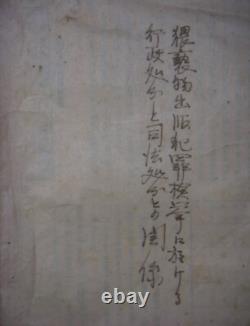 猥褻物出版犯罪検挙に於ける
行政処分と司法処分との関係
ebay